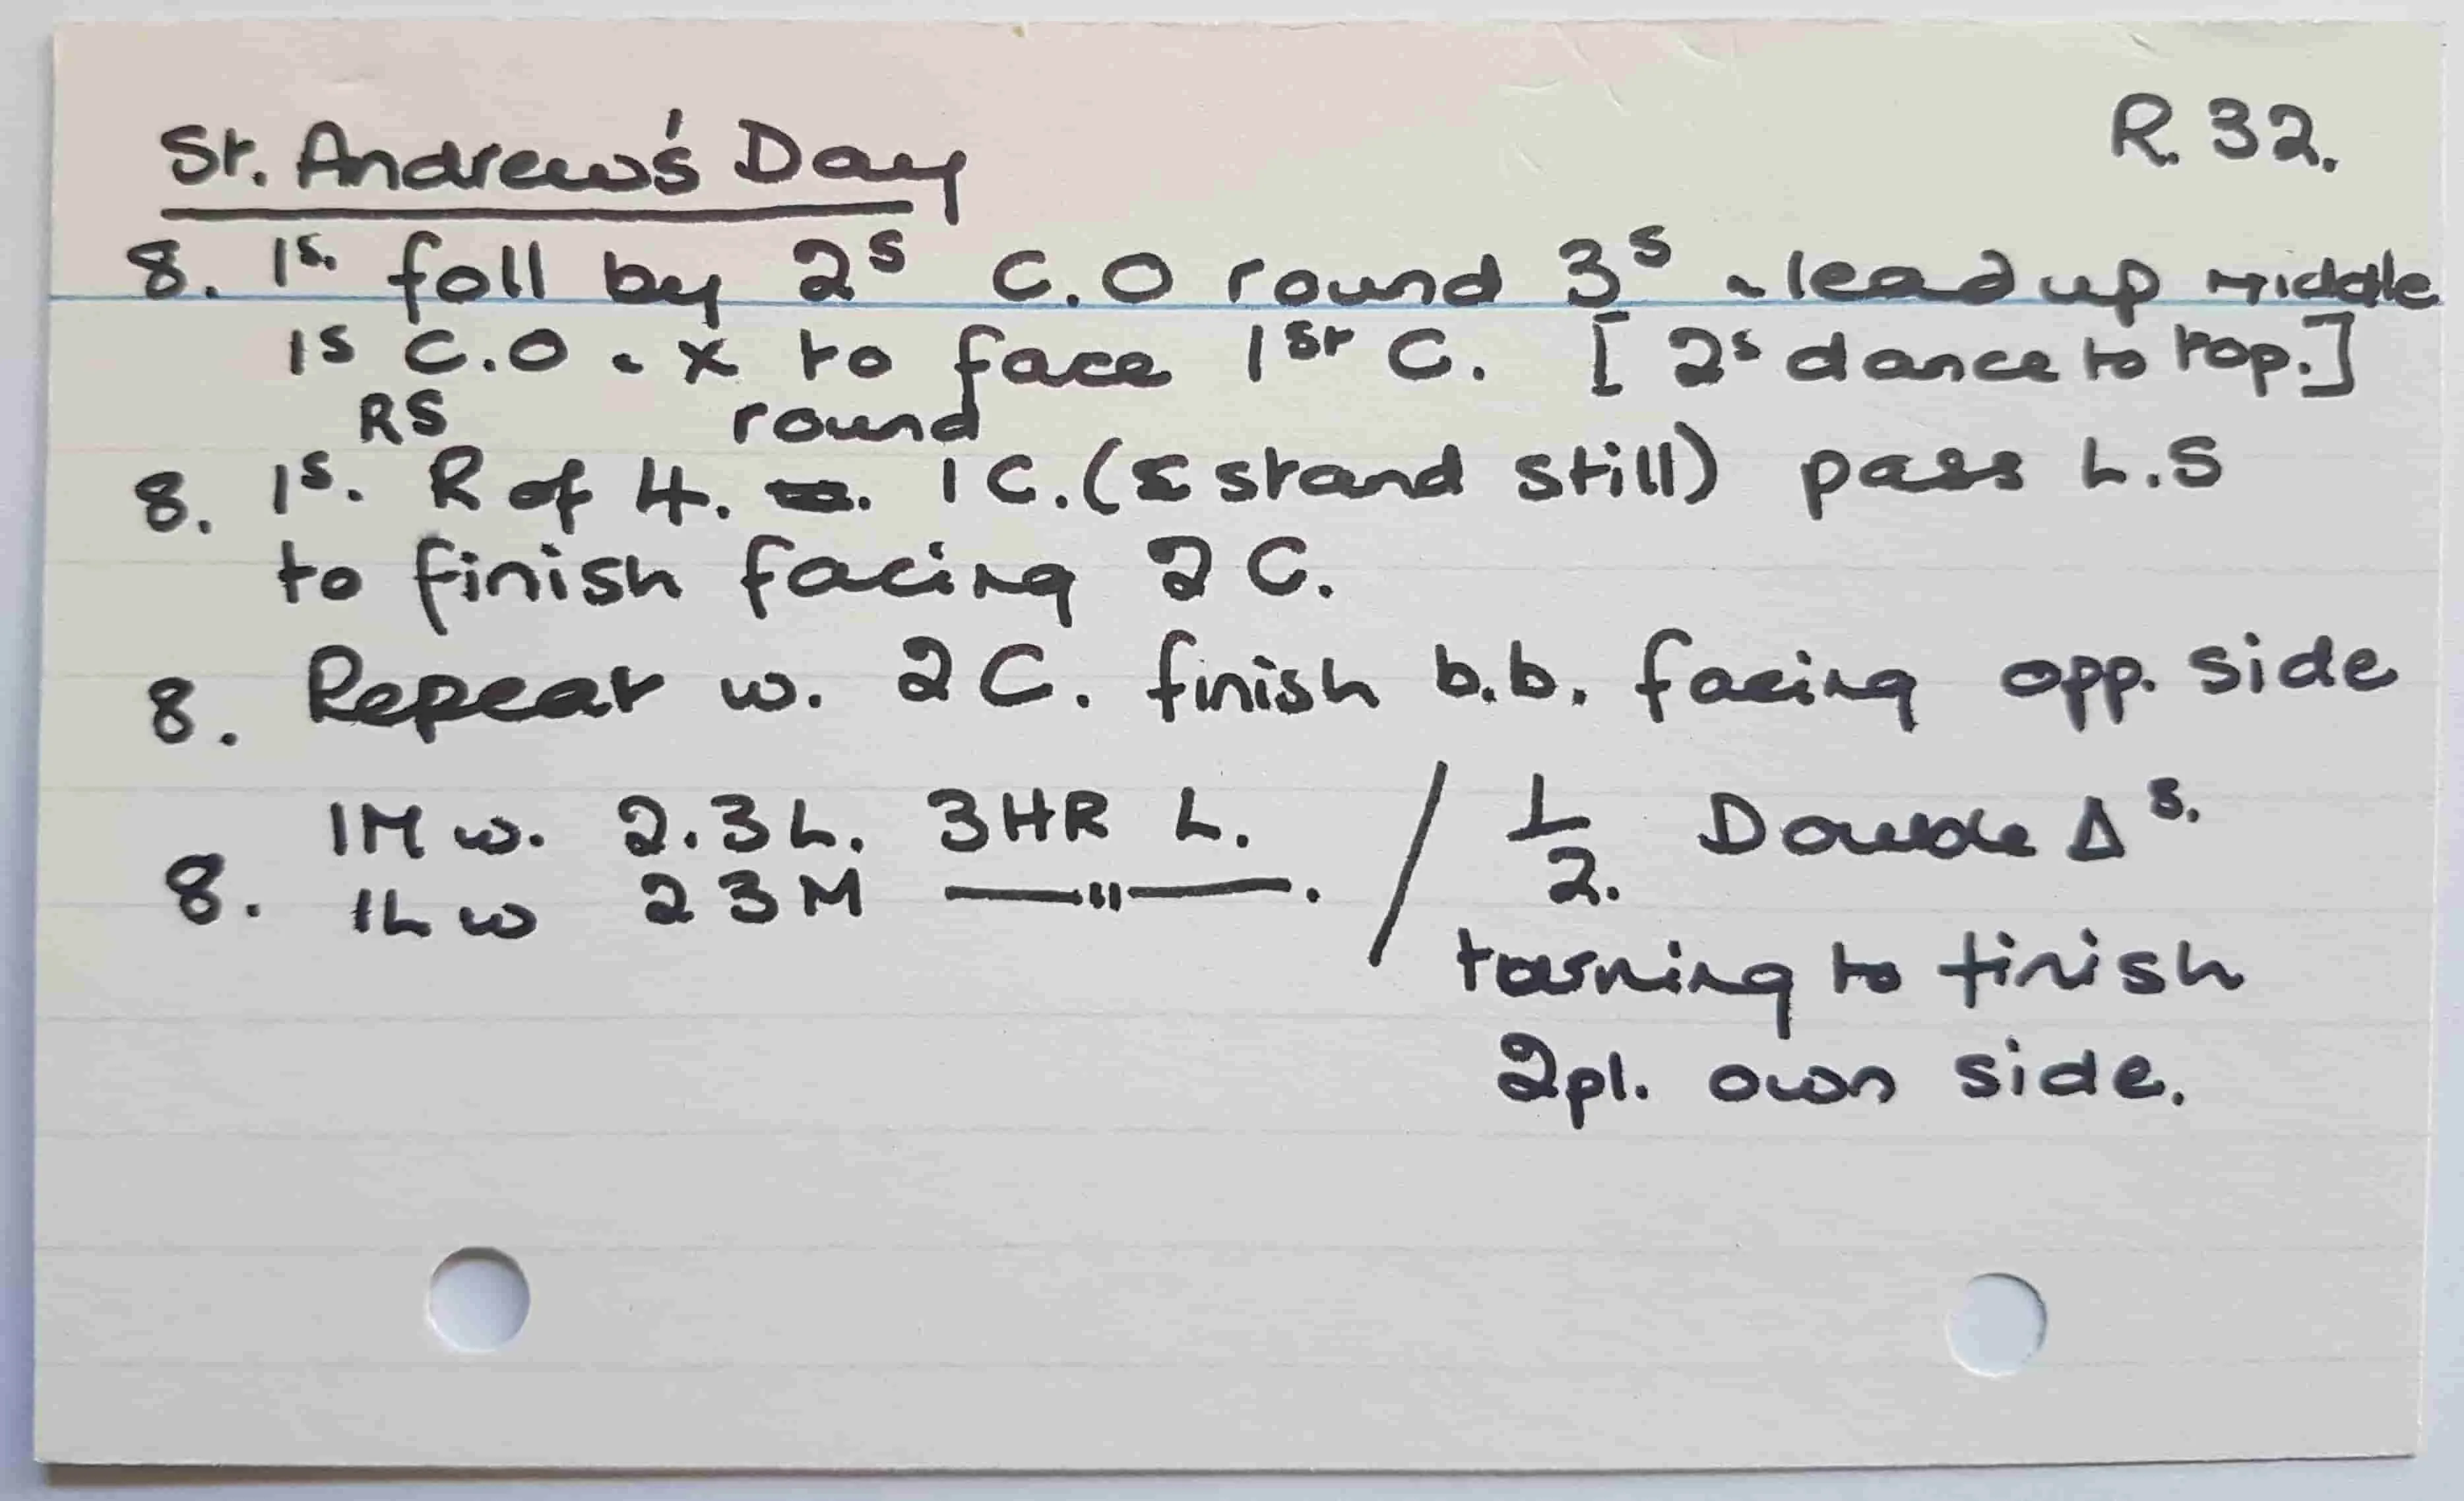 St. Andrew's Day R. 32.
8. 1s. foll by 2s C.O round 3s & lead up middle
1s C.O & x to face 1st C. [2s dance to top.]
RS round
8. 1s. R of 4. 1C. (& stand still) pass L.S
to finish facing 2C.
8. Repeat w. 2C. finish b.b. facing opp. side
1M w. 2.3L. 3HR L. / 1/2. Double Δs.
8. 1L w 2 3 M —"—.
turning to finish
2pl. own side.